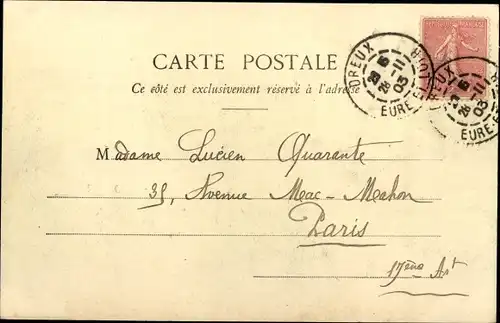 CARTE POSTALE
Ce côté est exclusivement réservé à l'adresse
DREUX
EURE-
28 -11
03
EURE-
28 -11
03
Madame Lucien Quarante
35, Avenue Mac-Mahon
Paris
17ème Art